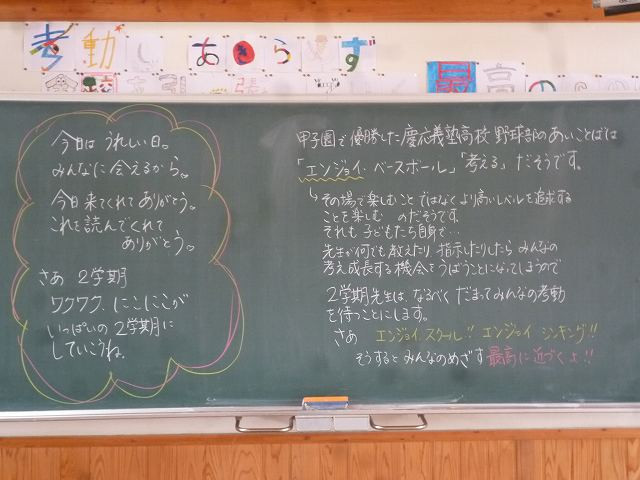 考動
あきらず
最高の
今日は うれしい日。
みんなに会えるから。
今日来てくれてありがとう。
これを読んでくれて
ありがとう。
さあ 2学期
ワクワク、にこにこが
いっぱいの2学期に
していこうね。
甲子園で優勝した慶応義塾高校野球部のあいことばは
「エンジョイ・ベースボール」「考える」だそうです。
その場で楽しむことではなくより高いレベルを追求する
ことを楽しむ のだそうです。
それも子どもたち自身で…
先生が何でも教えたり指示したりしたら みんなの
考え成長する機会をうばうことになってしまうので
2学期先生は、なるべくだまってみんなの考動
を待つことにします。
さあ エンジョイ スクール!! エンジョイ シンキング!!
そうするとみんなのめざす最高に近づくよ!!